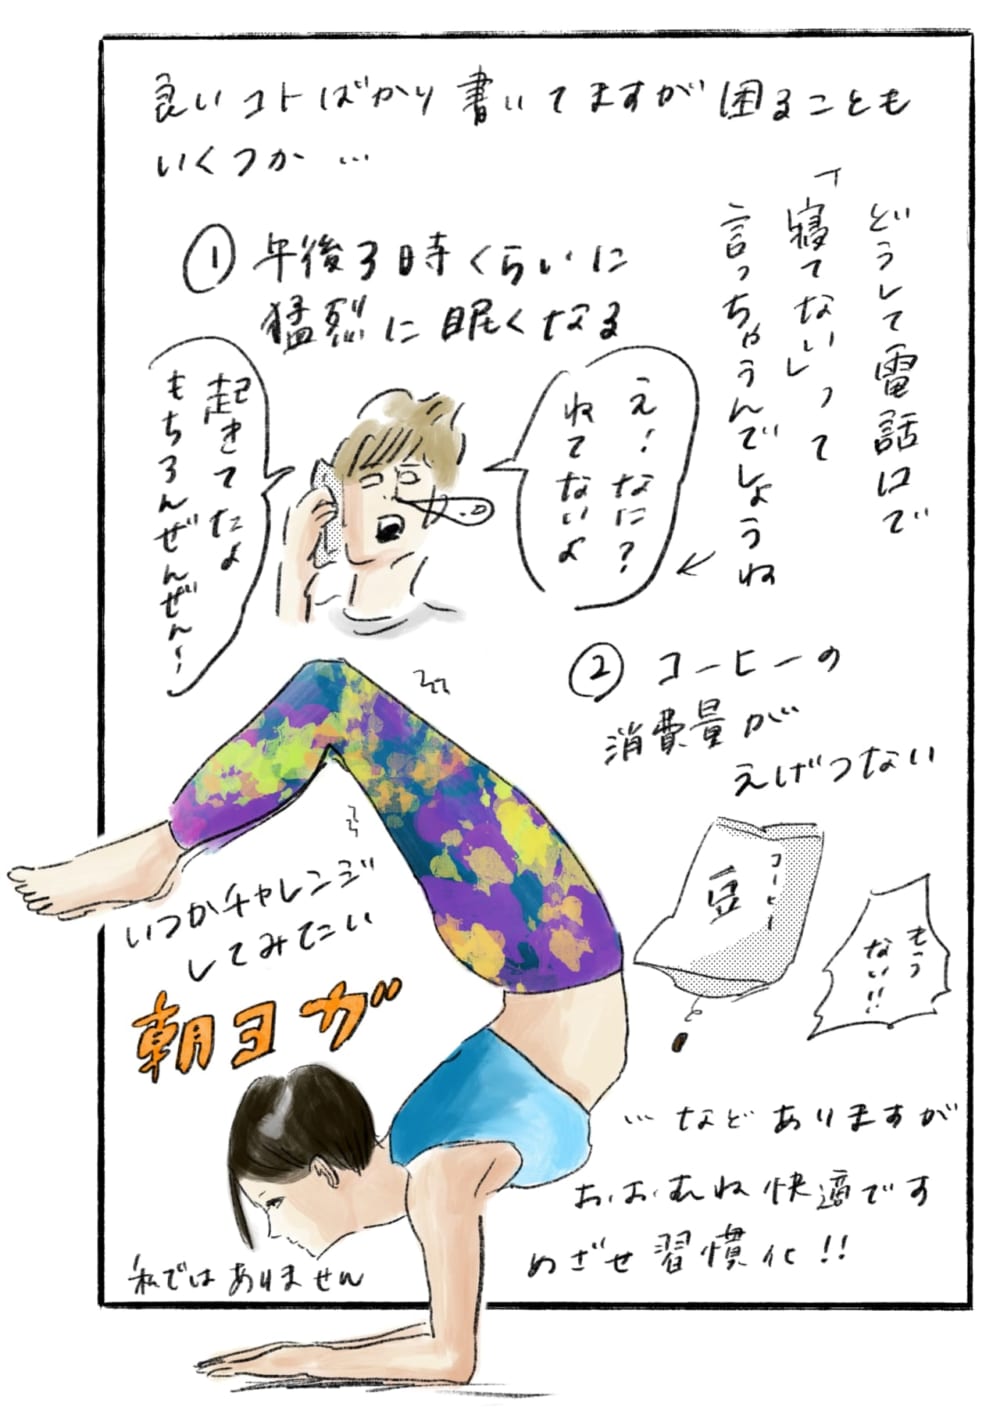 良いコトばかり書いてますが困ることも
いくつか…
① 午後3時くらいに
猛烈に眠くなる
どうして電話口で
「寝てない」って
言っちゃうんでしょうね
え！なに？
ねてないよ
起きてたよ
もちろんぜんぜん！
② コーヒーの
消費量が
えげつない
コーヒー
豆
もう
ない!!
いつかチャレンジ
してみたい
朝ヨガ
…などありますが
おおむね快適です
めざせ習慣化!!
私ではありません